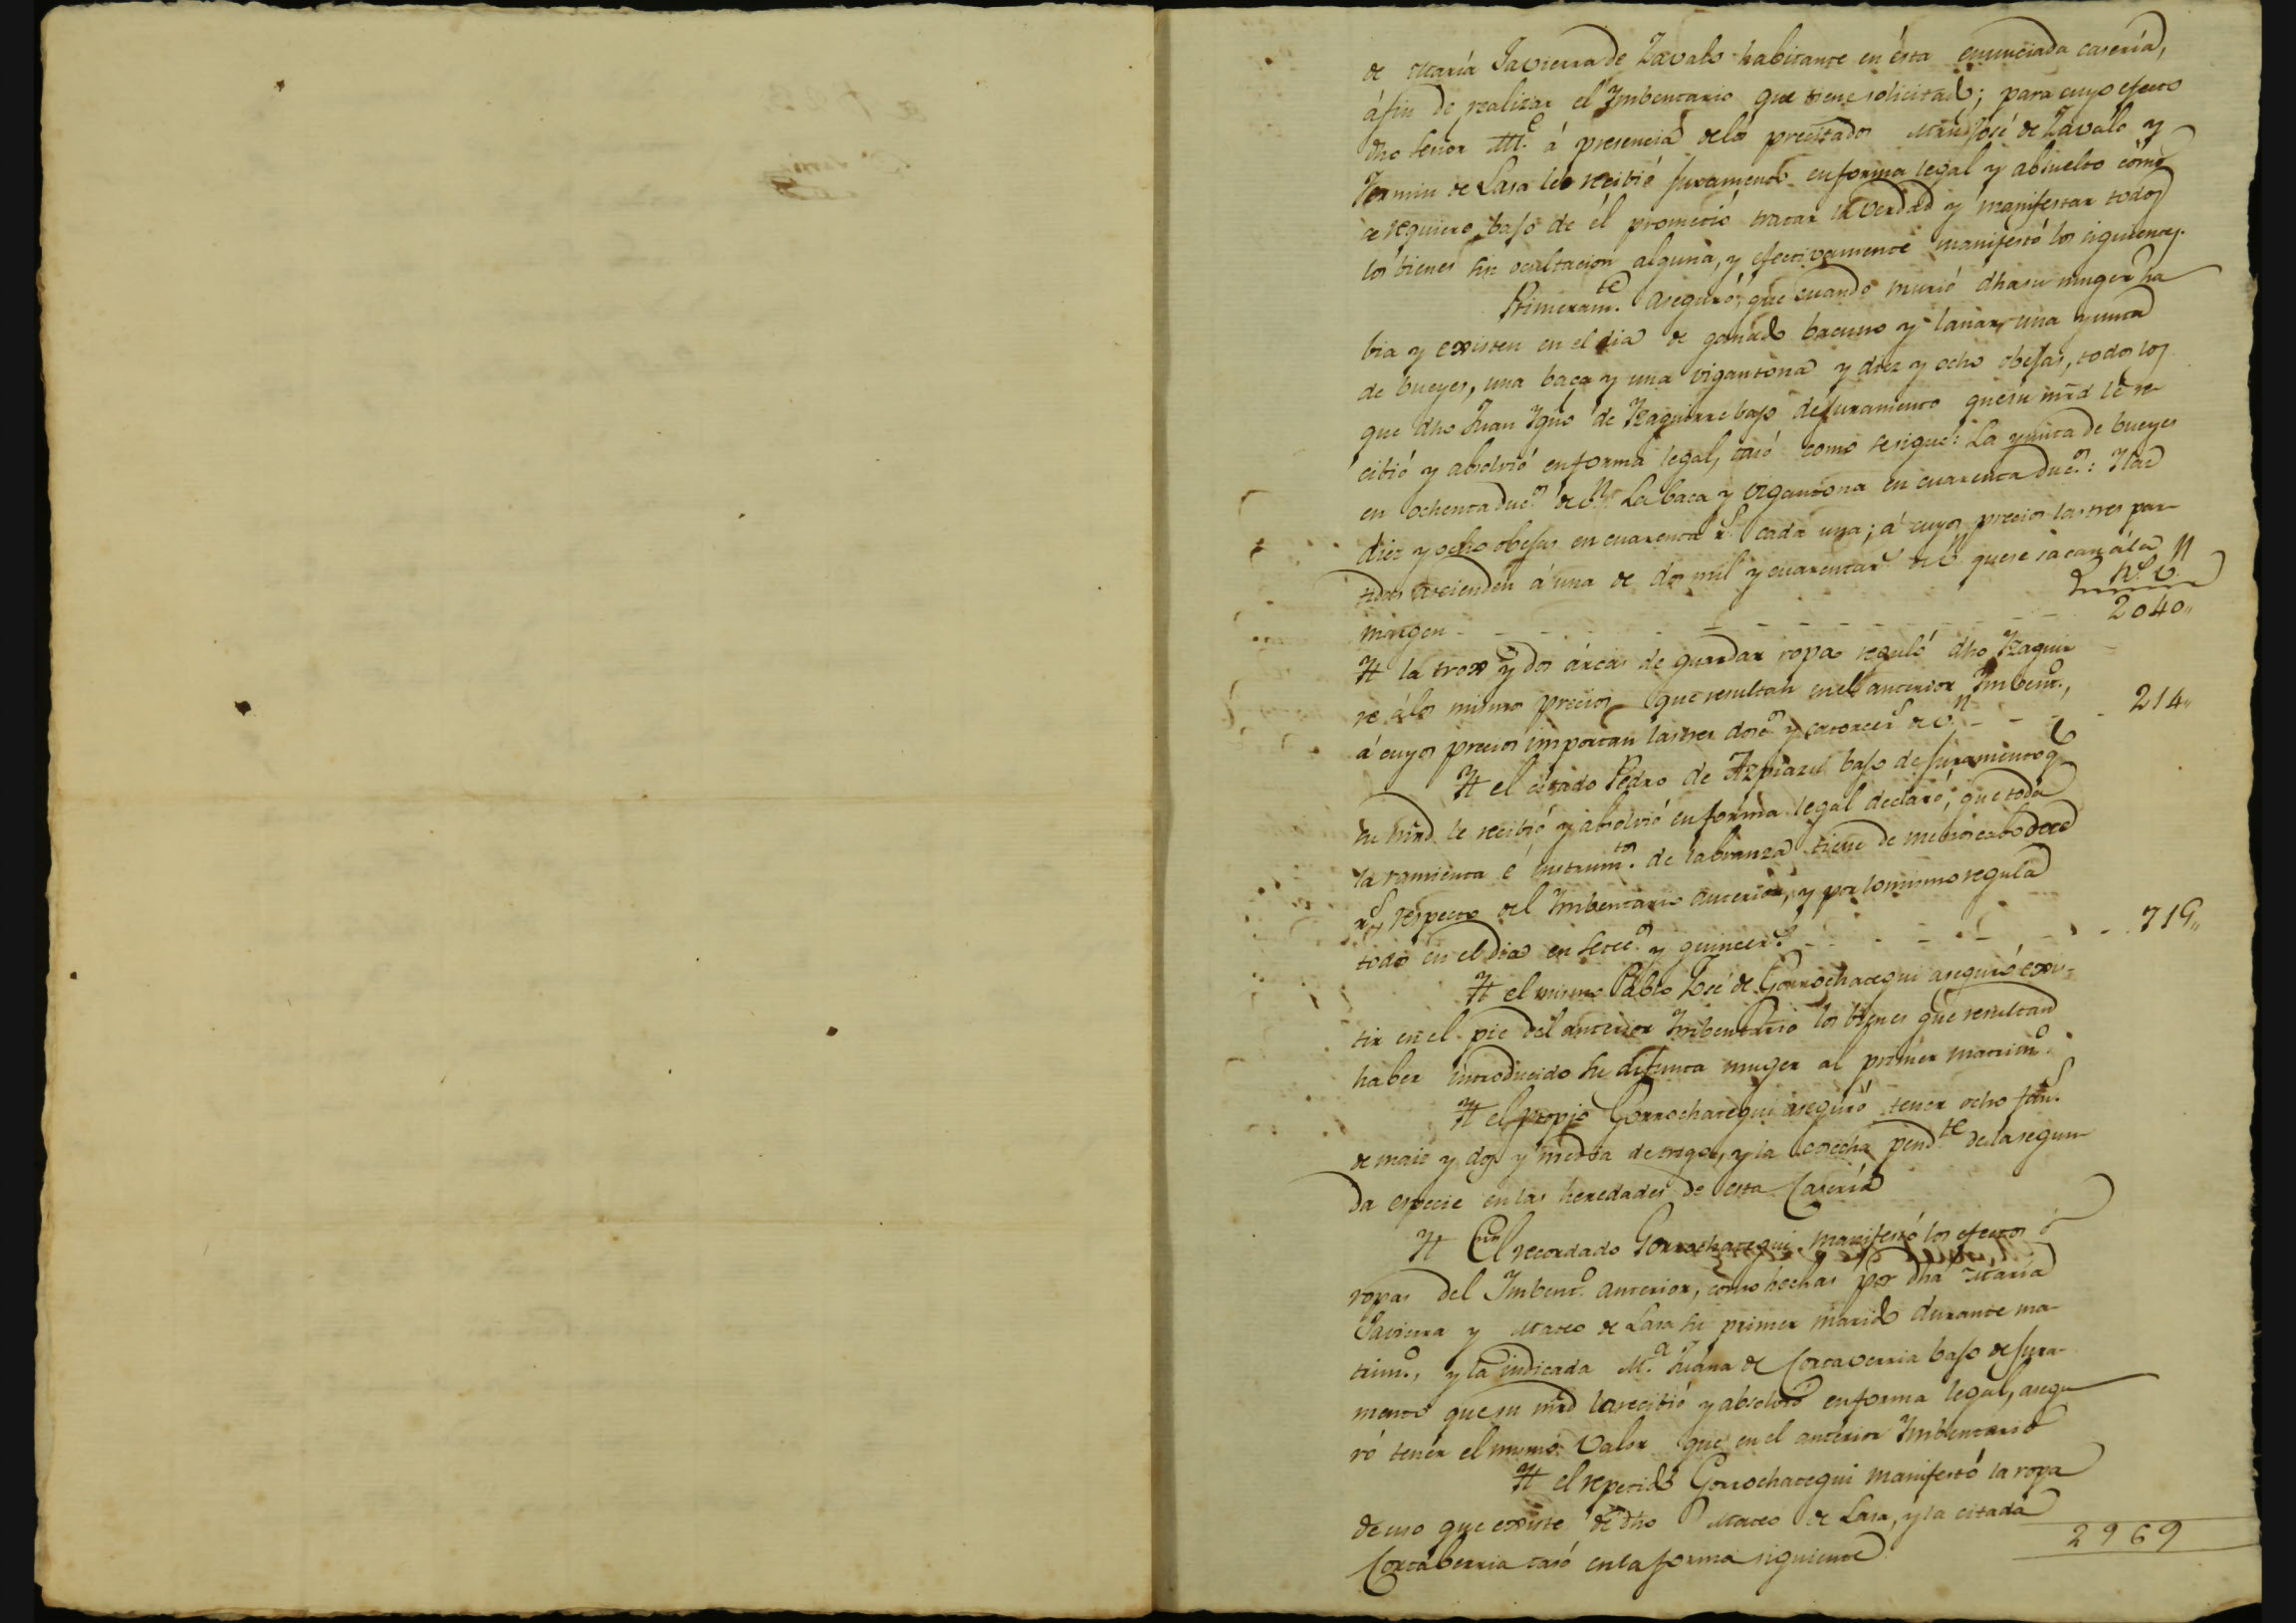 de María Javierra de Zavalo habitante en ésta enunciada casería,
á fin de realizar el Imbentario que tiene solicitado; para cuyo efecto
dho Señor Alc.e á presencia de los precitados Man.l José de Zavalo y
Fermin de Lasa le recibió juramento en forma legal y absuelto como
se requiere, bajo de él prometió tratar la verdad y manifestar todos
los bienes sin ocultacion alguna, y efectivamente manifestó los siguientes.
Primeram.te aseguró, que cuando murió dha su muger ha
bia y existen en el dia de ganado bacuno y lanar, una yunta
de bueyes, una baca y una vigantona y diez y ocho obejas, todos los
que dho Juan Ign.o de Yzaguirre bajo de juramento que su mrd le re
cibió y absolvió en forma legal, tasó como se sigue: La yunta de bueyes
en ochenta duc.s de v.n: La baca y vigantona en cuarenta duc.s: Y las
diez y ocho obejas en cuarenta r.s cada una; á cuyos precios las tres par
tidas ascienden á una de dos mil y cuarenta r.s de v.n que se sacan á la
margen - - - - - - - - - - - -
R.s v.n
2040,,
Yt la trox y dos árcas de guardar ropa reguló dho Yzaguir
re á los mismos precios que resultan en el anterior Imbent.o,
á cuyos precios importan las tres dosc.s y catorce r.s de v.n - - - - 214,,
Yt el citado Pedro de Azpiazu bajo de juramento q.e
su mrd le recibió y absolvió en forma legal declaró, que toda
la ramienta é instrum.tos de labranza tiene de menoscabo doce
r.s respecto del Imbentario anterior, y por lo mismo regula
todo en el dia en setec.s y quince r.s - - - - - - - 715,,
Yt el mismo Pablo José de Gorrochategui aseguró exis-
tir en el pie del anterior Imbentario los bienes que resultan
haber introducido su difunta muger al primer matrim.o
Yt el propio Gorrochategui aseguró tener ocho fan.s
de maiz y dos y media de trigo, y la cosecha pend.te de la segun
da especie en las heredades de esta Casería
Yt El recordado Gorrochategui manifestó los efectos ó
ropas del Imbent.o anterior, como hechas por dha María
Javierra y Mateo de Lasa su primer marido durante ma-
trim.o, y la indicada M.a Juana de Cortaverria bajo de jura-
mento que su mrd la recibió y absolvió en forma legal, asegu
ró tener el mismo valor que en el anterior Imbentario
Yt el repetido Gorrochategui manifestó la ropa
de uso que existe de dho Mateo de Lasa, y la citada
Cortaberria tasó en la forma siguiente
2969